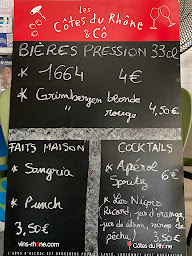 les
Côtes du Rhône
& Cô
BIÈRES PRESSION 33cl
* 1664 4€
* Grimbergen blonde
" rouge 4,50€
FAITS MAISON
* Sangria
* Punch
3,50€
vins-rhone.com
COCKTAILS
* Apérol
Spritz 6€
* Les Niçois
Ricard, jus d'orange,
jus de citron, sirop de
pêche! 3,50€
Côtes du Rhône
L'ABUS D'ALCOOL EST DANGEREUX POUR LA SANTÉ, CONSOMMEZ AVEC MODÉRATION